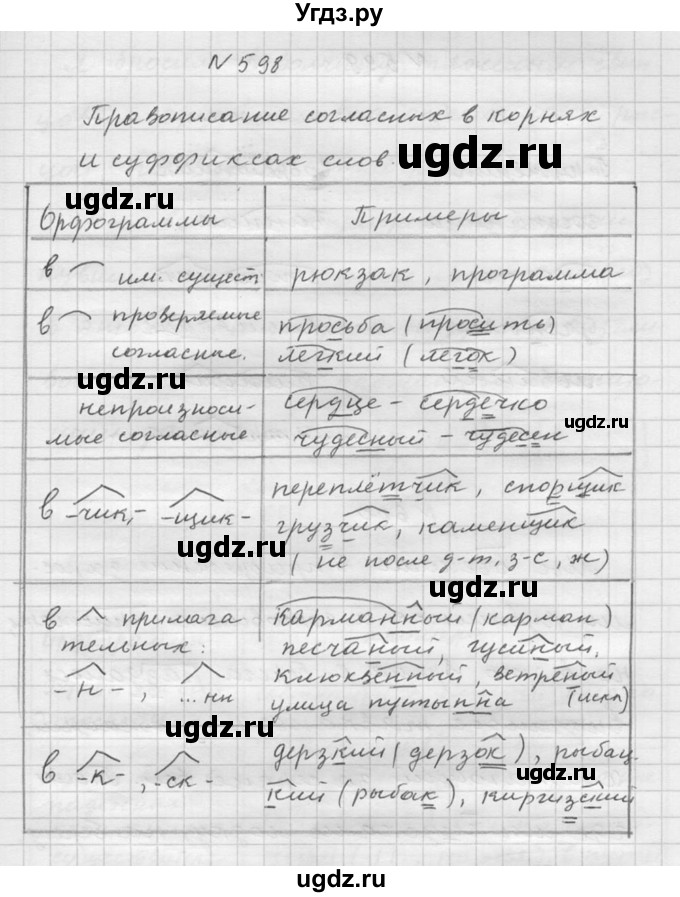 Угдз.ру
N 598
Правописание согласных в корнях
и суффиксах слов.
ugdz.ru
ugdz.ru
Орфограммы
Примеры
в им. сущест.
рюкзак, программа
в проверяемые согласные.
просьба (просить)
лёгкий (легок)
ugdz.ru
непроизноси-
мые согласные
сердце - сердечко
чудесный - чудесен
ugdz.ru
в -чик-, -щик-
переплётчик, спорщик
грузчик, каменщик
(не после д-т, з-с, ж)
ugdz.ru
ugdz.ru
в прилага
тельных:
-н-, ...нн
карманный (карман)
песчаный, гусиный,
клюквенный, ветреный
улица пустынна (искл)
ugdz.ru
в -к-, -ск-
дерзкий (дерзок), рыбац-
кий (рыбак), киргизский
ugdz.ru
ugdz.ru